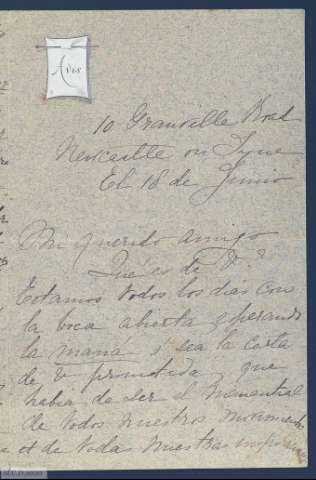 Aves
10 Granville Road
Newcastle on Tyne
El 18 de Junio
Mi querido amigo
Qué es de V.?
Estamos todos los dias con
la boca abierta esperando
la mana ó sea la carta
de V prometida, que
habia de ser el manantial
de todos nuestros movimientos
et de todas nuestras